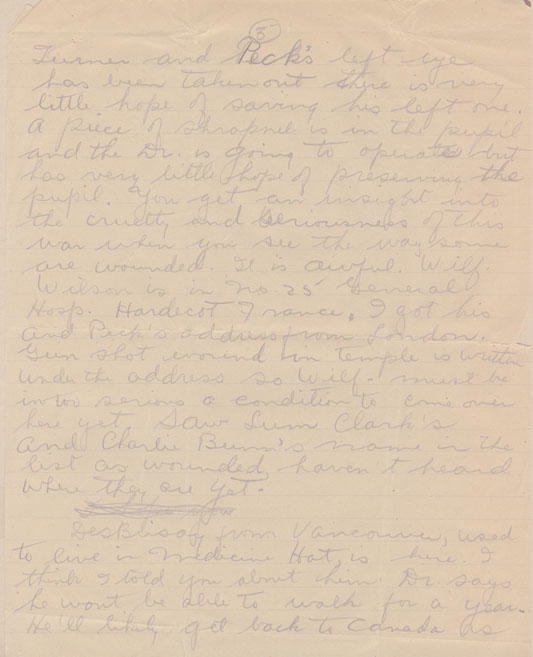 3
Turner and Peck's left eye
has been taken out there is very
little hope of saving his left one.
A piece of shrapnel is in the pupil
and the Dr. is going to operate but
has very little hope of preserving the
pupil. You get an insight into
the cruelty and seriousness of this
war when you see the way some
are wounded. It is awful. Wilf.
Wilson is in No. 25 General
Hosp. Hardecot France. I got his
and Peck's address from London.
Gun shot wound in temple is written
under the address so Wilf- must be
in too serious a condition to come over
here yet Saw Lum Clark's
and Charlie Bunn's name in the
list as wounded, haven't heard
where they are yet.
from Vancouver, used
to live in Medicine Hat, is here. I
think I told you about him. Dr. says
he wont be able to walk for a year.
He'll likely get back to Canada as